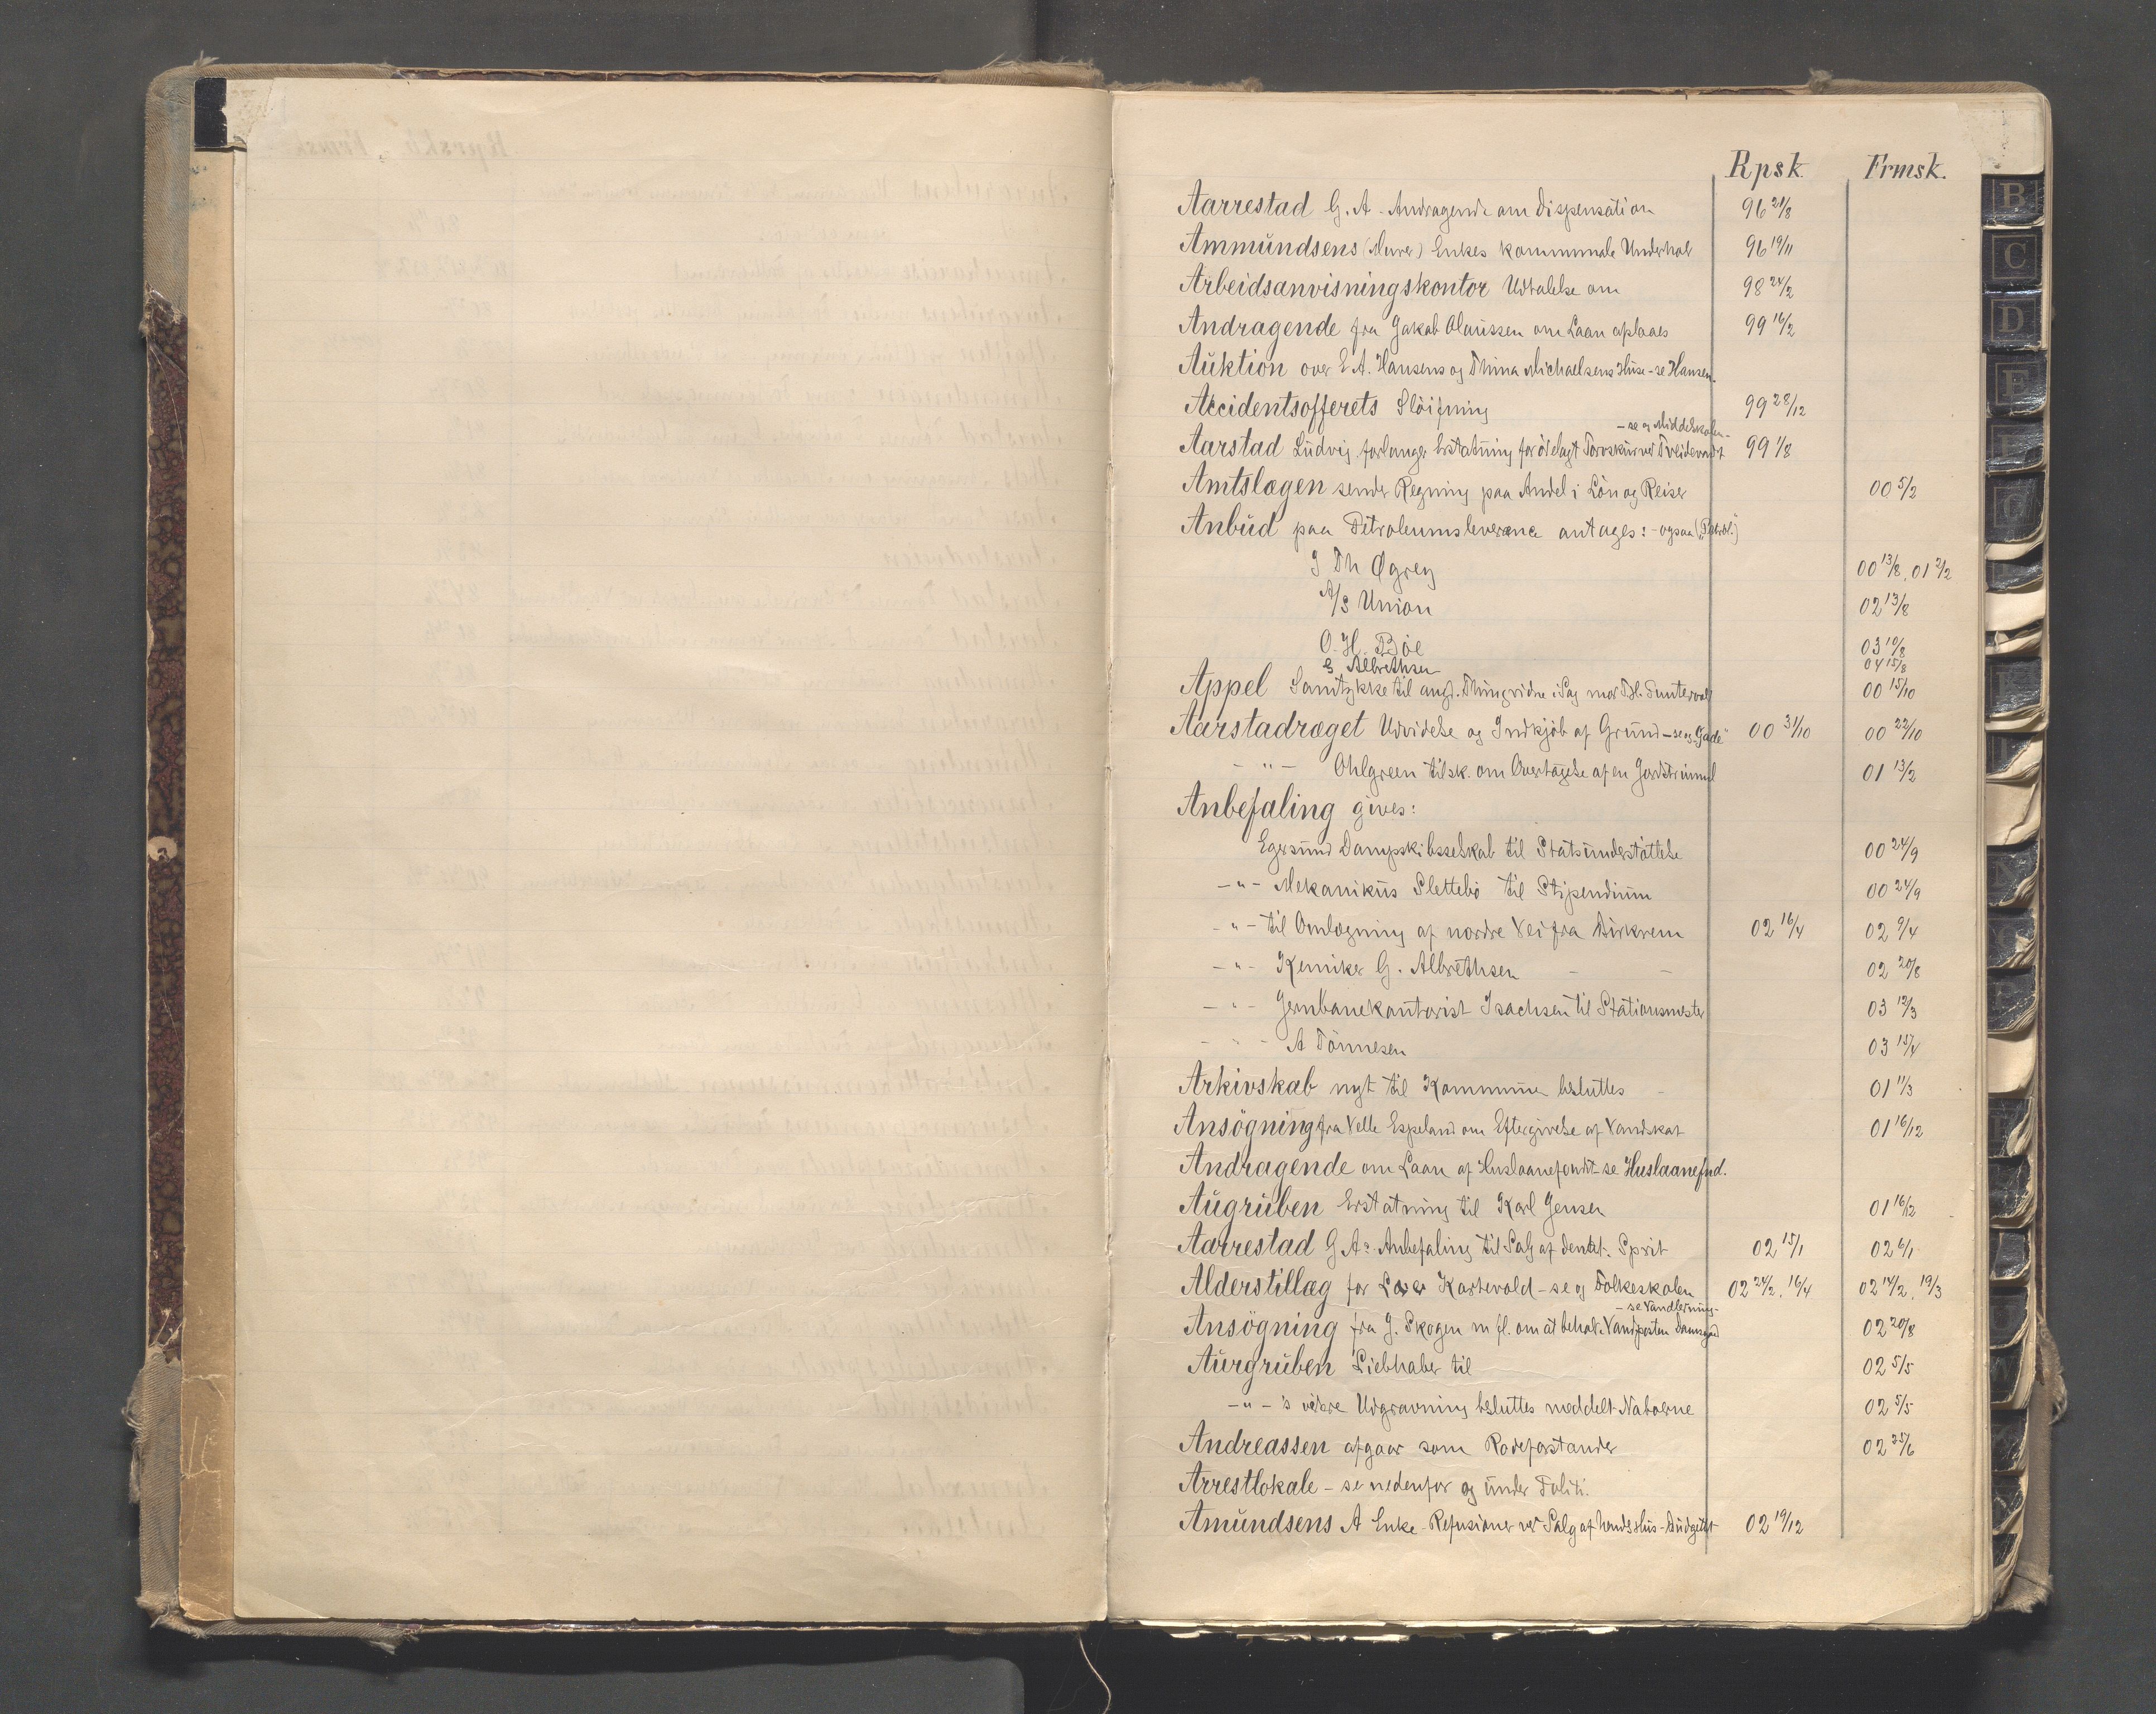 Rpsk. Frmsk.
Aarrestad G. A - Andragende om Dispensation 96 21/8
Ammundsens (Murer) Enkes kommunale Underhold 96 19/11
Arbeidsanvisningskontor Udtalelse om 98 24/2
Andragende fra Jakob Olaussen om Laan afslaaes 99 16/2
Auktion over E A. Hansens og Thina Michaelsens Huse - se Hansen.
Accidentsofferets Sløifning 99 28/12
- se og Middelskolen -
Aarstad Ludvig forlanger Erstatning for ødelagt Torvskur ved 99 1/8
Amtslægen sender Regning paa Andel i Løn og Reiser 00 5/2
Anbud paa Petroleumsleverance antages: - ogsaa ("Petrol.")
J Th Øgrey 00 13/8, 01 2/2
A/S Union 02 13/8
O. H. Bøe 03 10/8
G Albrethsen 04 15/8
Appel Samtykke til angd. Thingvidne i Sag mod 00 15/10
Aarstadræget Udvidelse og Indkjøb af Grund - se og "Gade" 00 31/10 00 22/10
- " - Ohlgreen tilsk. om Overtagelse af en Jordstrimmel 01 13/2
Anbefaling gives:
Egersund Dampskibsselskab til Statsunderstøttelse 00 24/9
- " - Mekanikus Slettebø til Stipendium 00 24/9
- " - til Omlægning af nordre Vei fra Birkrem 02 16/4 02 9/4
- " - Kemiker G. Albrethsen - - 02 20/8
- " - Jernbanekontorist Isachsen til Stationsmester 03 12/3
- " - A Tønnesen 03 15/4
Arkivskab nyt til Kommunen besluttes - 01 11/3
Ansøgning fra Velle Espeland om Eftergivelse af Vandskat 01 16/12
Andragende om Laan af Huslaanefondet se Huslaanefnd.
Augruben Erstatning til Karl Jensen 01 16/12
Aarrestad G As. Anbefaling til Salg af denat. Sprit 02 15/1 02 6/1
Alderstillæg for Lærer Kartevold - se og Folkeskolen 02 24/2, 16/4 02 14/2, 19/3
- se Vandledning -
Ansøgning fra J. Skogen m fl. om at behold. Vandposten Damsgd 02 20/8
Aurgruben Liebhaber til 02 5/5
- " - 's videre Udgravning besluttes meddelt Naboerne 02 5/5
Andreassen afgaar som Rodeforstander 02 25/6
Arrestlokale - se nedenfor og under Politi.
Amundsens A Enke - Refusioner ved Salg af hendes Hus - Budgettet 02 19/12
B
C
D
E
F
G